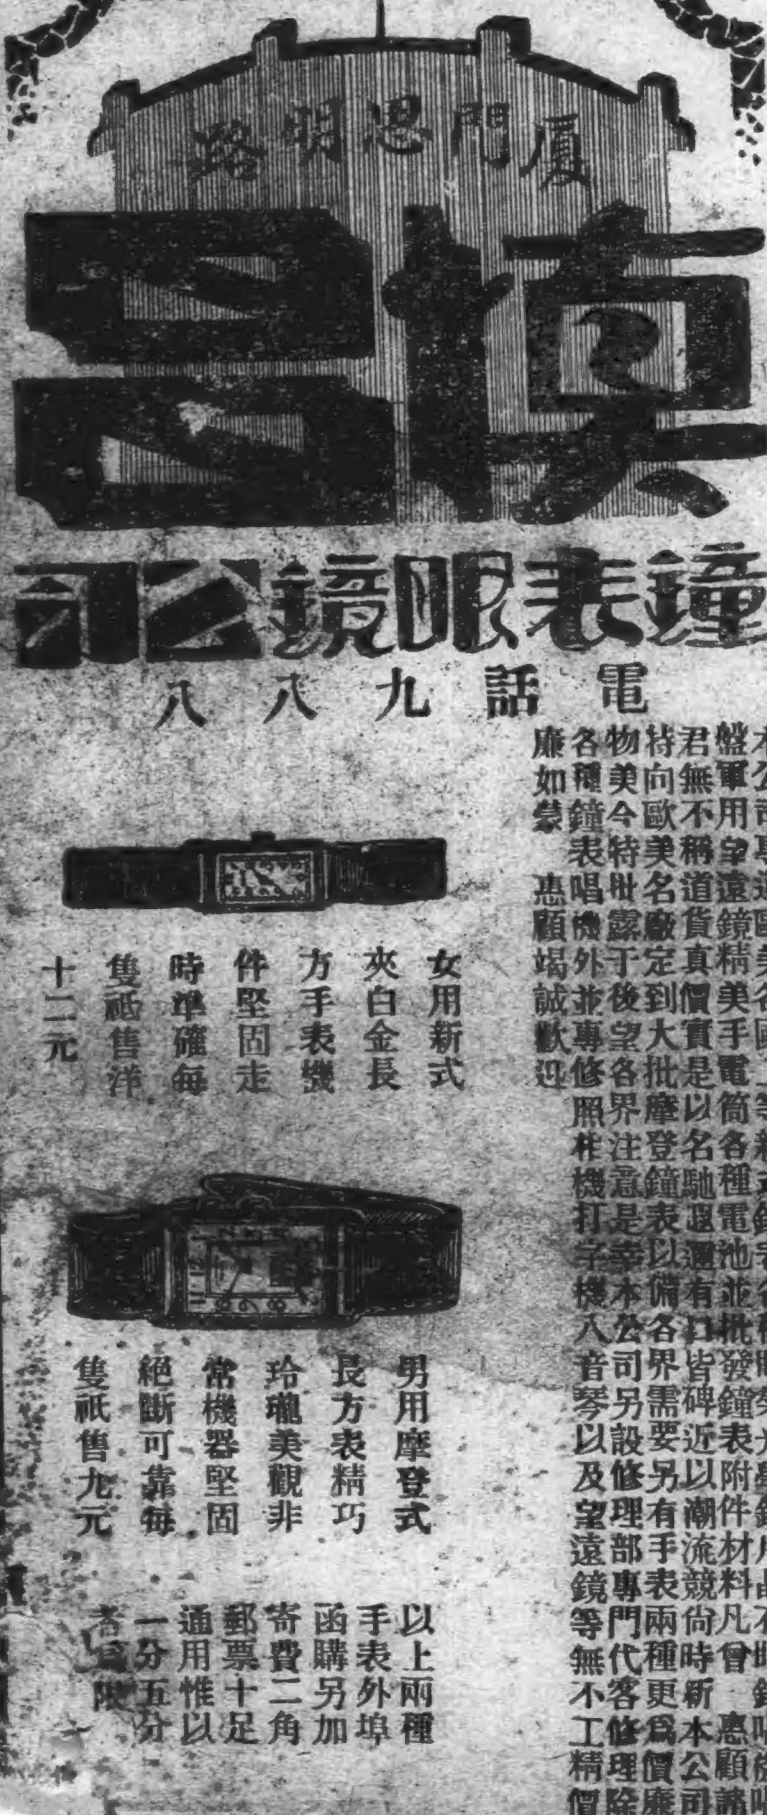 廈門思明路
慎昌
鐘表眼鏡公司
電話九八八
盤軍用望遠鏡精美手電筒各種電池並批發鐘表附件材料凡曾 惠顧諸
君無不稱道貨真價實是以名馳遐邇有口皆碑近以潮流競尙時新本公司
特向歐美名廠定到大批摩登鐘表以備各界需要另有手表兩種更爲價廉
物美今特批露于後望各界注意是幸本公司另設修理部專門代客修理除
各種鐘表唱機外並專修照相機打字機八音琴以及望遠鏡等無不工精價
廉如蒙 惠顧竭誠歡迎
女用新式
夾白金長
方手表機
件堅固走
時準確每
隻祗售洋
十二元
男用摩登式
長方表精巧
玲瓏美觀非
常機器堅固
絕斷可靠每
隻祗售九元
以上兩種
手表外埠
函購另加
寄費二角
郵票十足
通用惟以
一分五分
者爲限